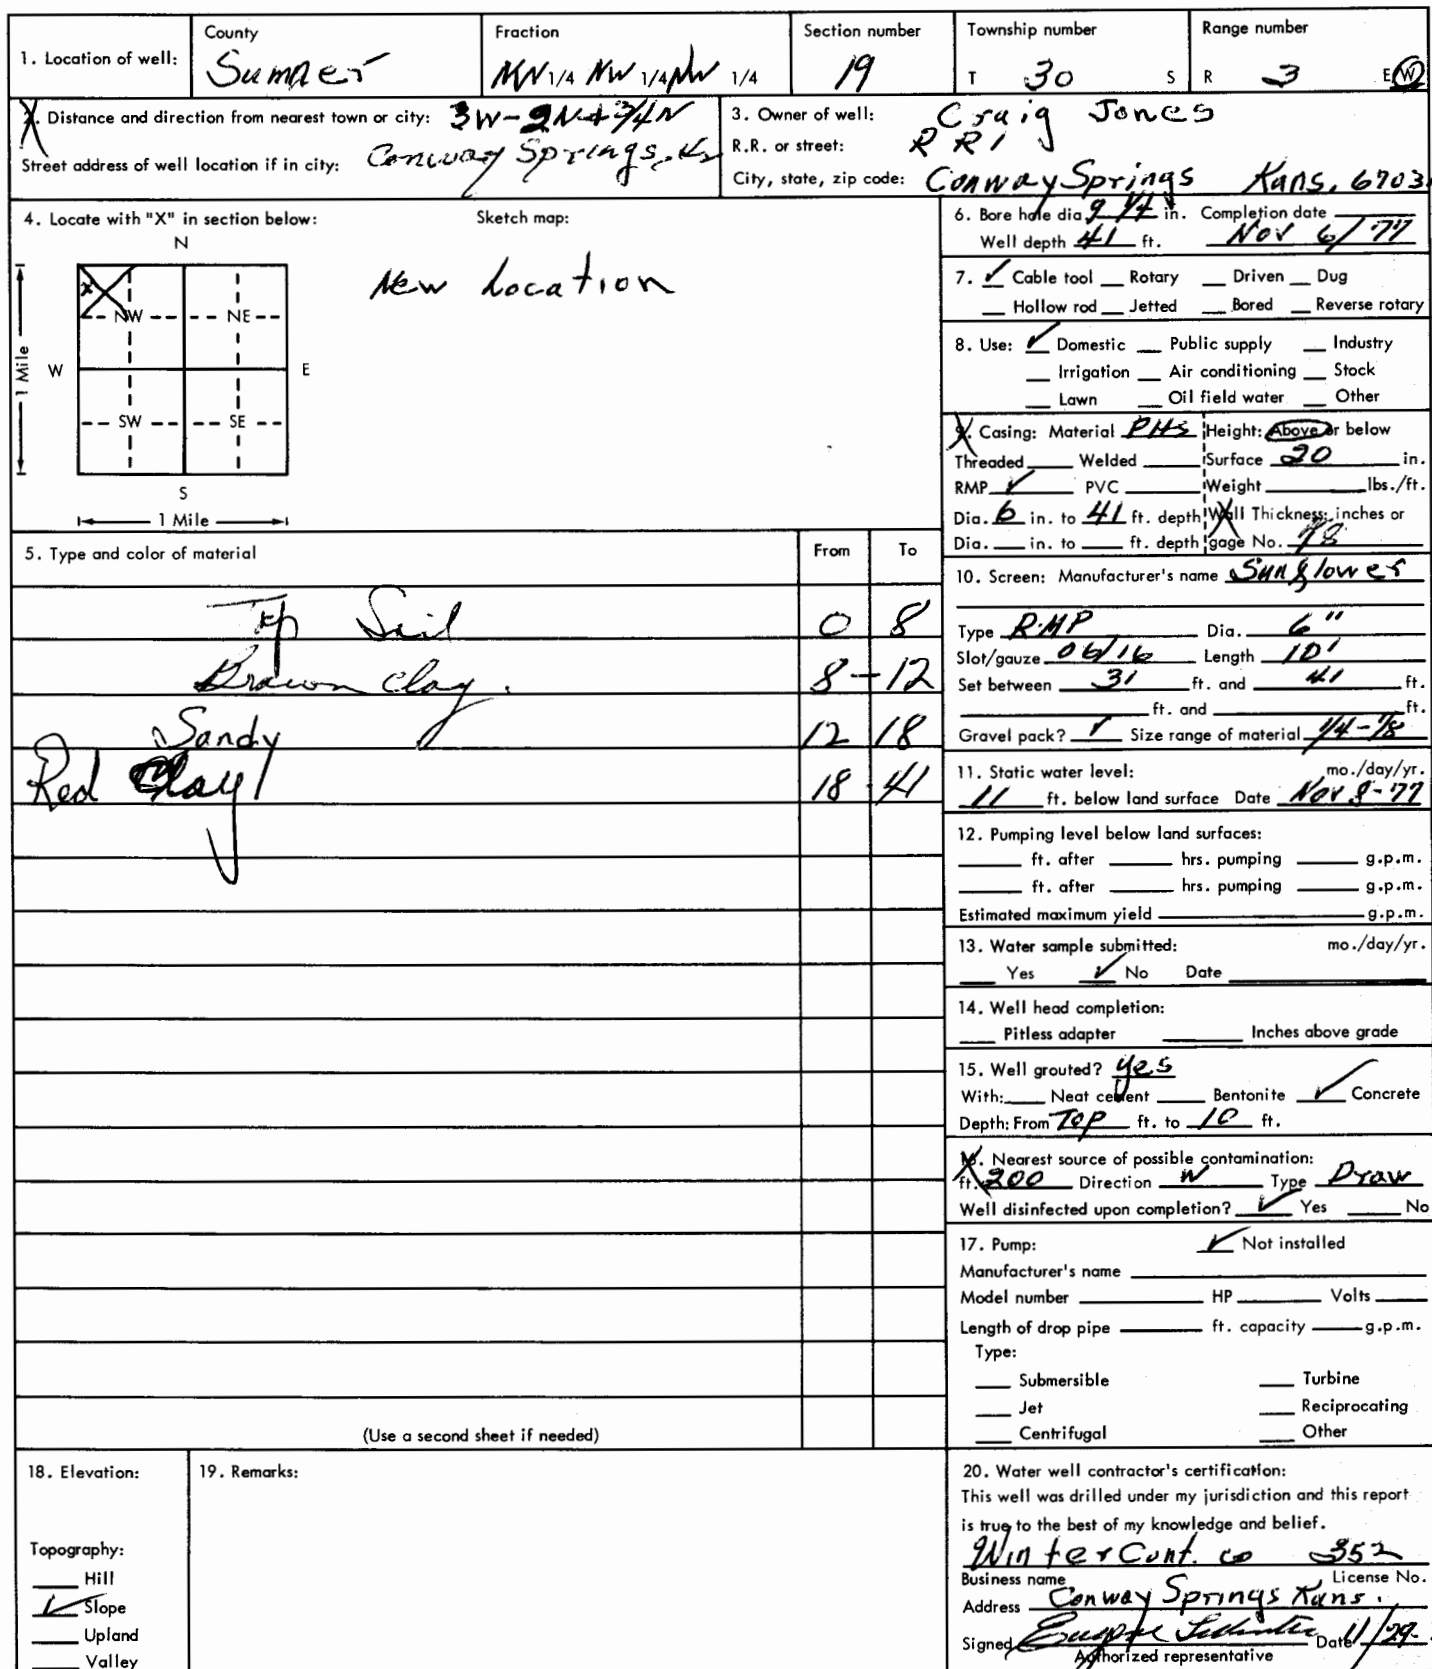 1. Location of well:
County
Sumner
Fraction
NW 1/4 NW 1/4 NW 1/4
Section number
19
Township number
T 30 S
Range number
R 3 E W
2. Distance and direction from nearest town or city: 3W-2N+3/4N
Street address of well location if in city: Conway Springs, Ks
3. Owner of well: Craig Jones
R.R. or street: RR1
City, state, zip code: Conway Springs Kans. 6703
4. Locate with "X" in section below:
Sketch map:
New Location
N
X
NW NE
W E
1 Mile
SW SE
S
1 Mile
5. Type and color of material From To
Top Soil 0 8
Brown Clay. 8-12
Sandy 12 18
Red Clay 18 41
(Use a second sheet if needed)
6. Bore hole dia 9 1/4 in. Completion date
Well depth 41 ft. Nov 6/77
7. ✓ Cable tool __ Rotary __ Driven __ Dug
__ Hollow rod __ Jetted __ Bored __ Reverse rotary
8. Use: ✓ Domestic __ Public supply __ Industry
__ Irrigation __ Air conditioning __ Stock
__ Lawn __ Oil field water __ Other
9. Casing: Material PHS Height: Above or below
Threaded __ Welded __ Surface 20 in.
RMP ✓ PVC __ Weight __ lbs./ft.
Dia. 6 in. to 41 ft. depth Wall Thickness: inches or
Dia. __ in. to __ ft. depth gage No.
10. Screen: Manufacturer's name Sunflower
Type RMP Dia. 6"
Slot/gauze 06/16 Length 10'
Set between 31 ft. and 41 ft.
__ ft. and __ ft.
Gravel pack? ✓ Size range of material 1/4-1/8
11. Static water level: mo./day/yr.
11 ft. below land surface Date Nov 8-77
12. Pumping level below land surfaces:
__ ft. after __ hrs. pumping __ g.p.m.
__ ft. after __ hrs. pumping __ g.p.m.
Estimated maximum yield __ g.p.m.
13. Water sample submitted: mo./day/yr.
__ Yes ✓ No Date __
14. Well head completion:
__ Pitless adapter __ Inches above grade
15. Well grouted? yes
With: __ Neat cement __ Bentonite ✓ Concrete
Depth: From Top ft. to 10 ft.
16. Nearest source of possible contamination:
ft. 200 Direction W Type Draw
Well disinfected upon completion? ✓ Yes __ No
17. Pump: ✓ Not installed
Manufacturer's name __
Model number __ HP __ Volts __
Length of drop pipe __ ft. capacity __ g.p.m.
Type:
__ Submersible __ Turbine
__ Jet __ Reciprocating
__ Centrifugal __ Other
18. Elevation:
Topography:
__ Hill
✓ Slope
__ Upland
__ Valley
19. Remarks:
20. Water well contractor's certification:
This well was drilled under my jurisdiction and this report
is true to the best of my knowledge and belief.
Winter Cont. co 352
Business name License No.
Address Conway Springs Kans.
Signed Date 11/29-
Authorized representative